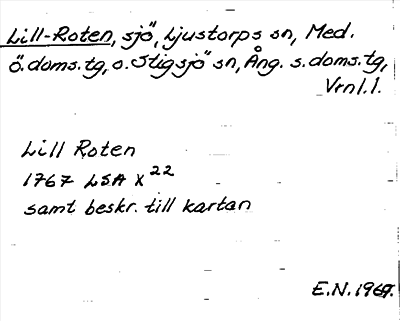 Lill-Roten, sjö, Ljustorps sn, Med.
ö. doms.tg, o. Stigsjö sn, Ång. s. doms.tg,
Vrnl.l.
Lill Roten
1767 LSA X²²
samt beskr. till kartan
E.N. 1969.